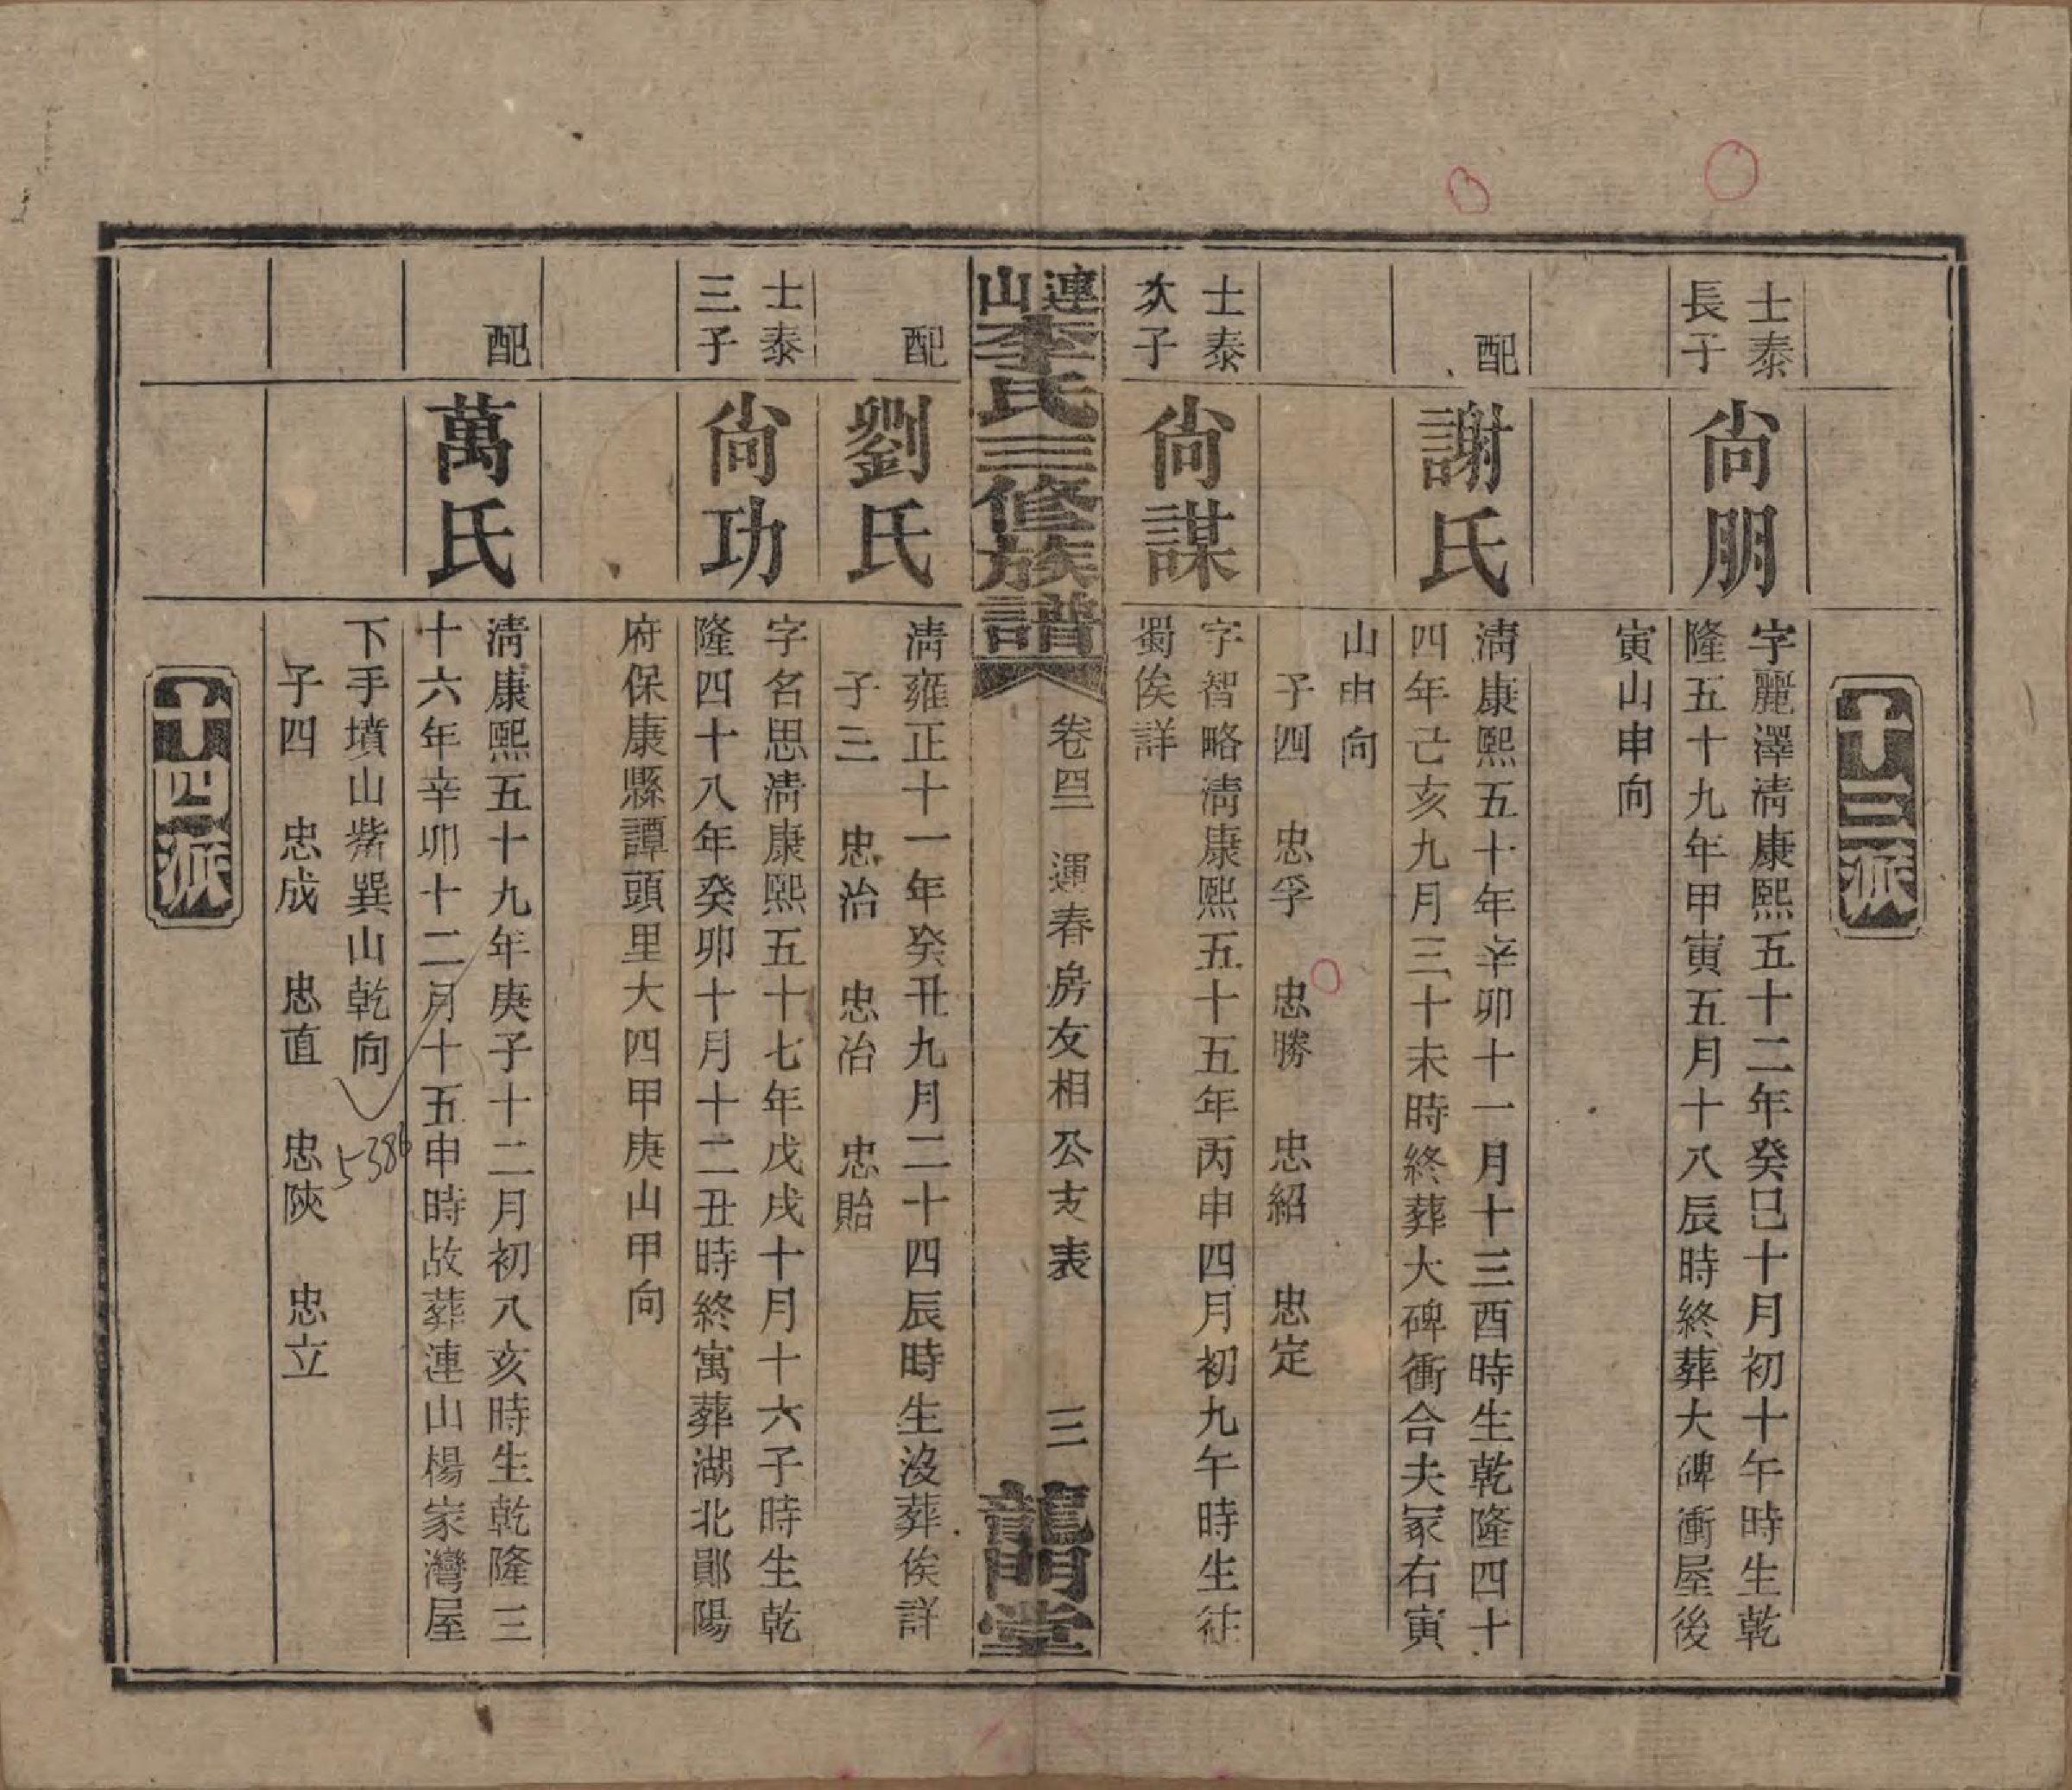 十三派
士泰
長子
尙朋
字麗澤淸康熙五十二年癸巳十月初十午時生乾
隆五十九年甲寅五月十八辰時終葬大碑衝屋後
寅山申向
配
謝氏
淸康熙五十年辛卯十一月十三酉時生乾隆四十
四年己亥九月三十未時終葬大碑衝合夫冢右寅
山申向
子四 忠孚 忠勝 忠紹 忠定
士泰
次子
尙謀
字智略淸康熙五十五年丙申四月初九午時生徃
蜀俟詳
連山李氏三修族譜
卷四 運春房友相公支表 三
龍門堂
配
劉氏
淸雍正十一年癸丑九月二十四辰時生沒葬俟詳
子三 忠治 忠冶 忠貽
士泰
三子
尙功
字名思淸康熙五十七年戊戌十月十六子時生乾
隆四十八年癸卯十月十二丑時終寓葬湖北鄖陽
府保康縣譚頭里大四甲庚山甲向
配
萬氏
淸康熙五十九年庚子十二月初八亥時生乾隆三
十六年辛卯十二月十五申時故葬連山楊家灣屋
下手墳山紫巽山乾向
5386
子四 忠成 忠直 忠陝 忠立
十四派